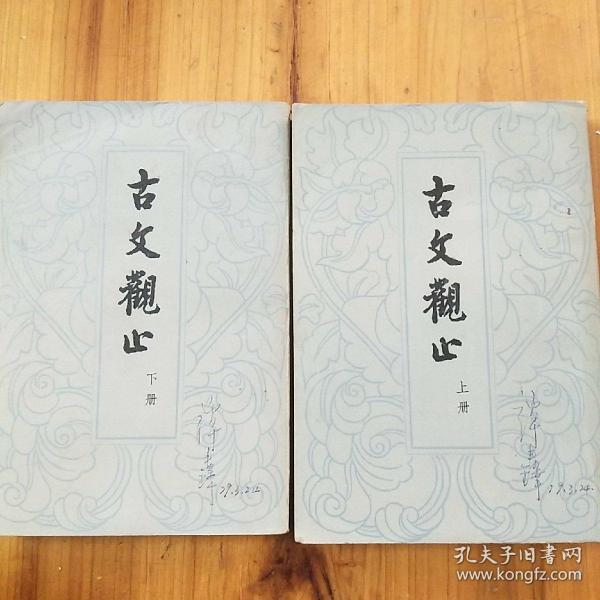 古文觀止
下册
古文觀止
上册
79.3.24.
孔夫子旧书网
www.kongfz.com